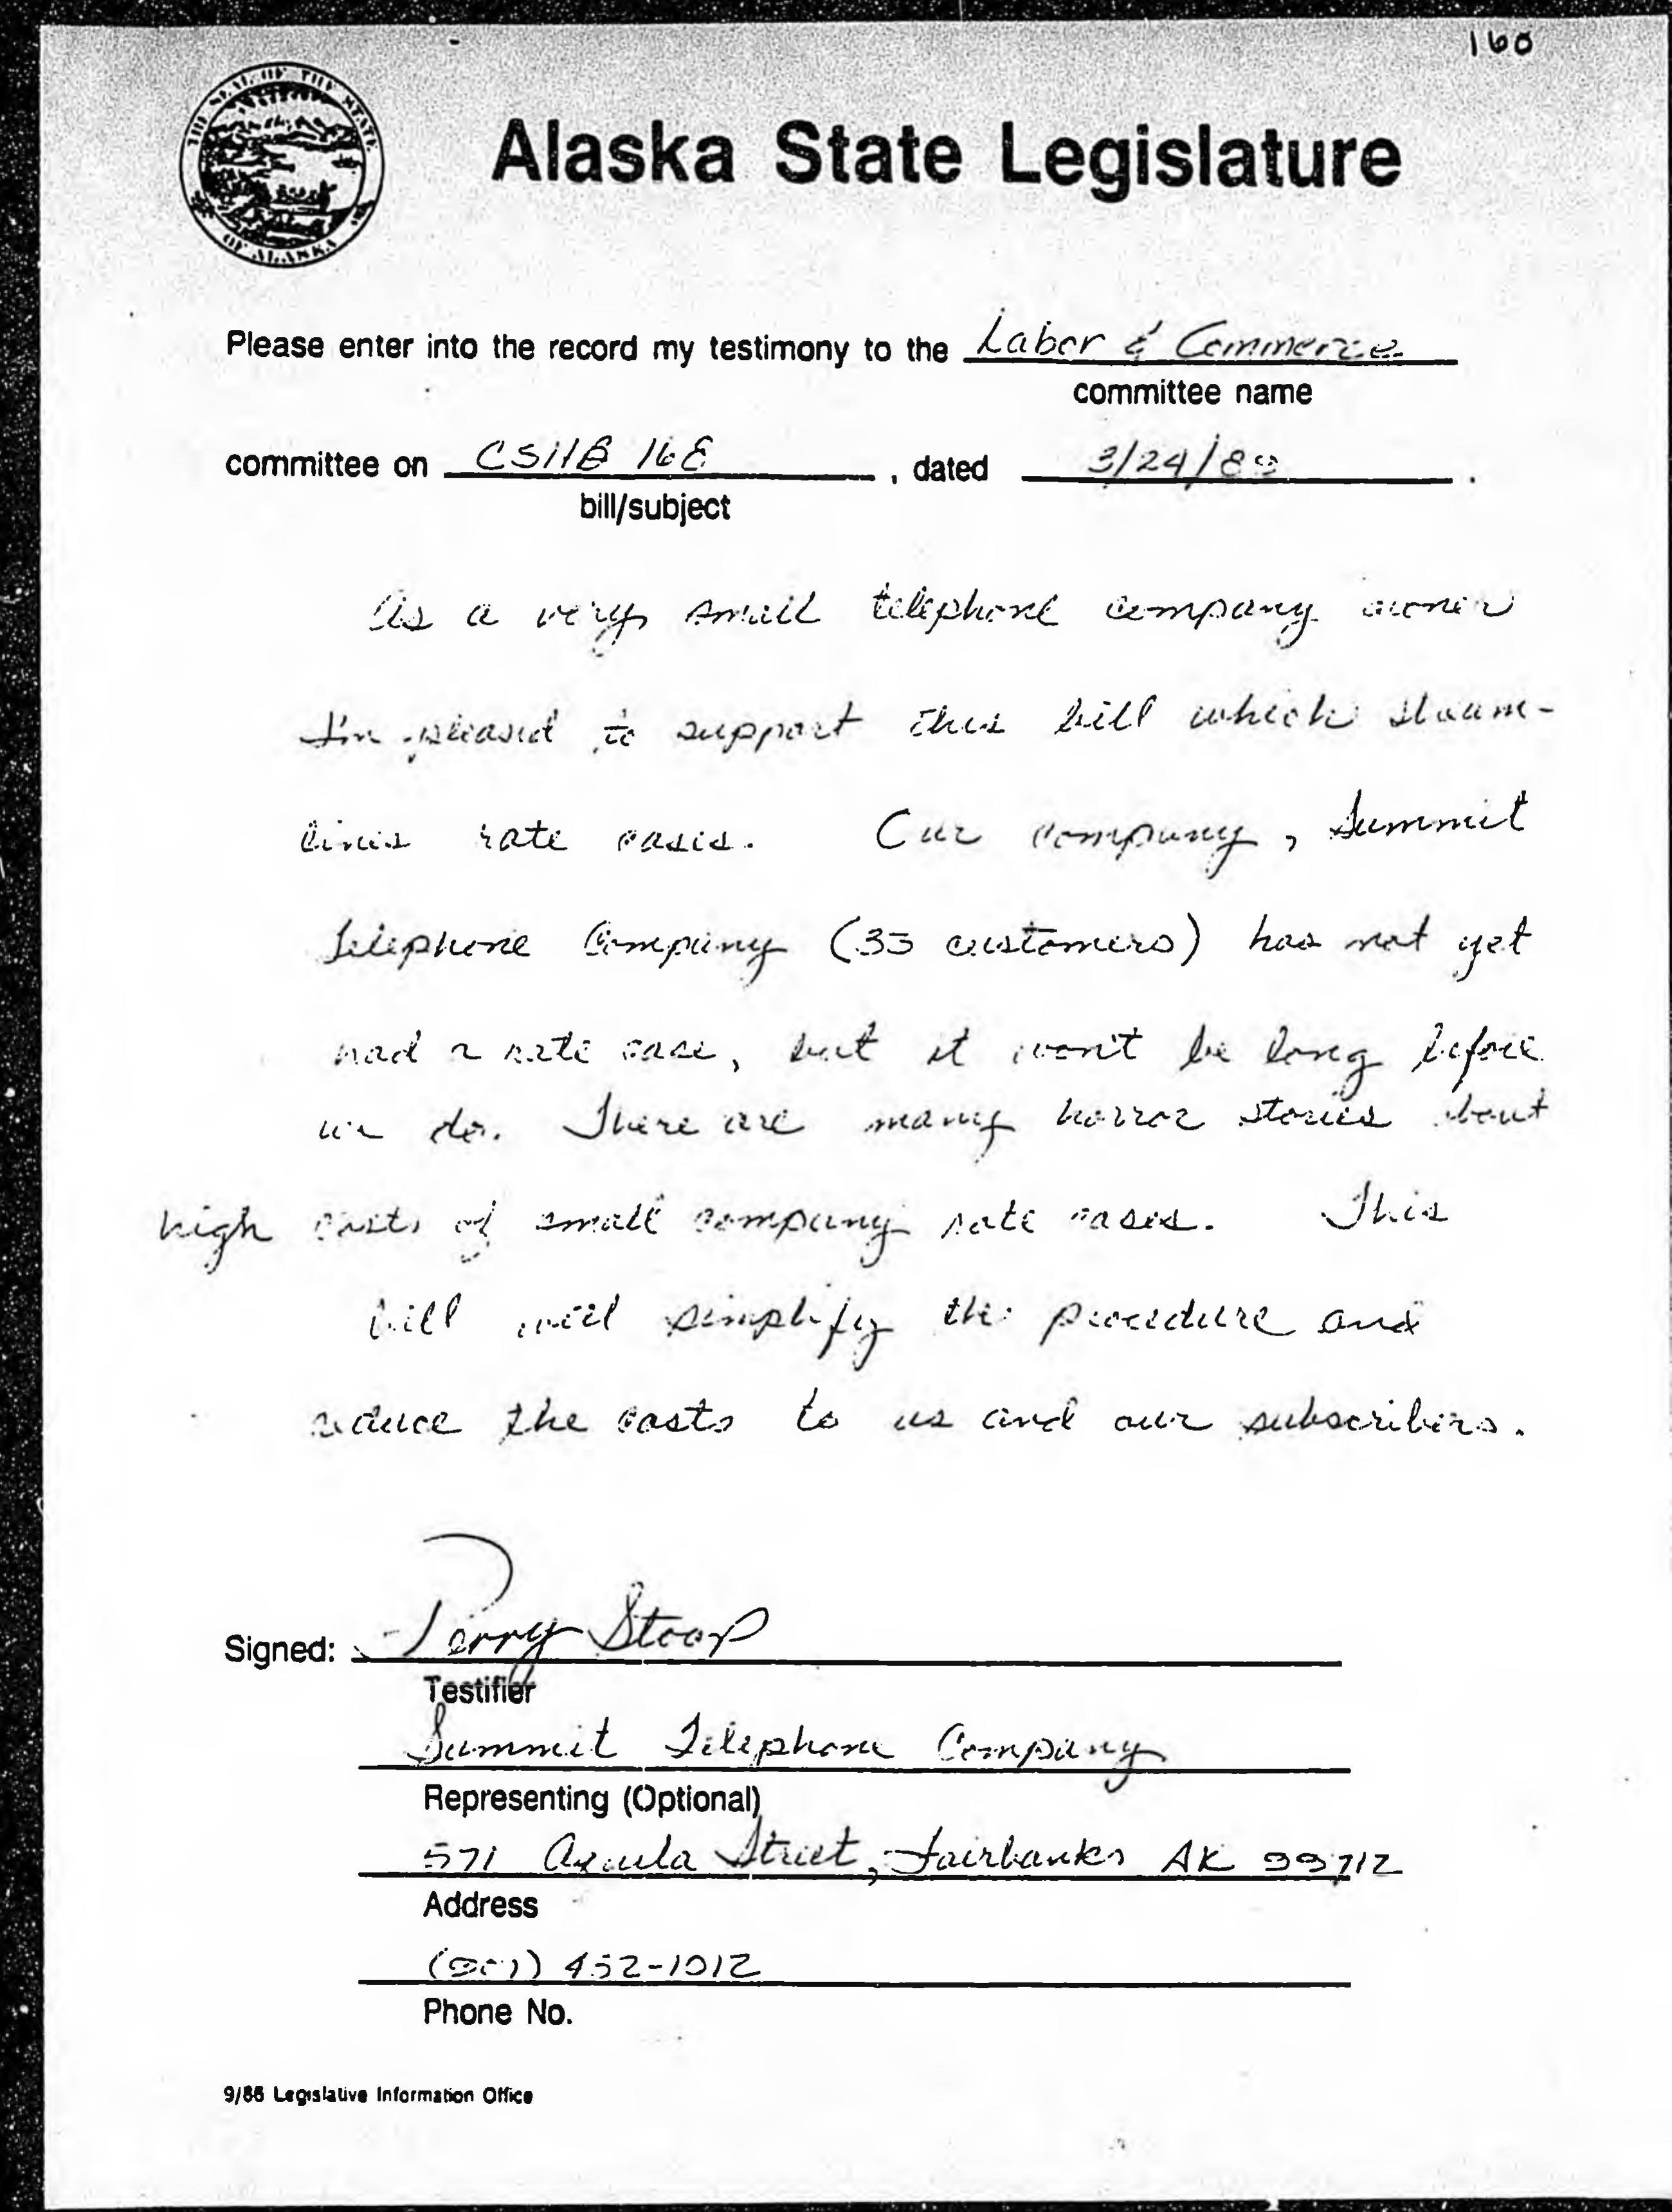 160
THE SEAL OF THE STATE OF ALASKA
Alaska State Legislature
Please enter into the record my testimony to the Labor & Commerce
committee name
committee on CSHB 168, dated 3/24/89.
bill/subject
As a very small telephone company owner
I'm pleased to support this bill which stream-
lines rate cases. Our company, Summit
Telephone Company (35 customers) has not yet
had a rate case, but it won't be long before
we do. There are many horror stories about
high costs of small company rate cases. This
bill will simplify the procedure and
reduce the costs to us and our subscribers.
Signed: Perry Stoop
Testifier
Summit Telephone Company
Representing (Optional)
571 Street, Fairbanks AK 99712
Address
(907) 452-1012
Phone No.
9/86 Legislative Information Office